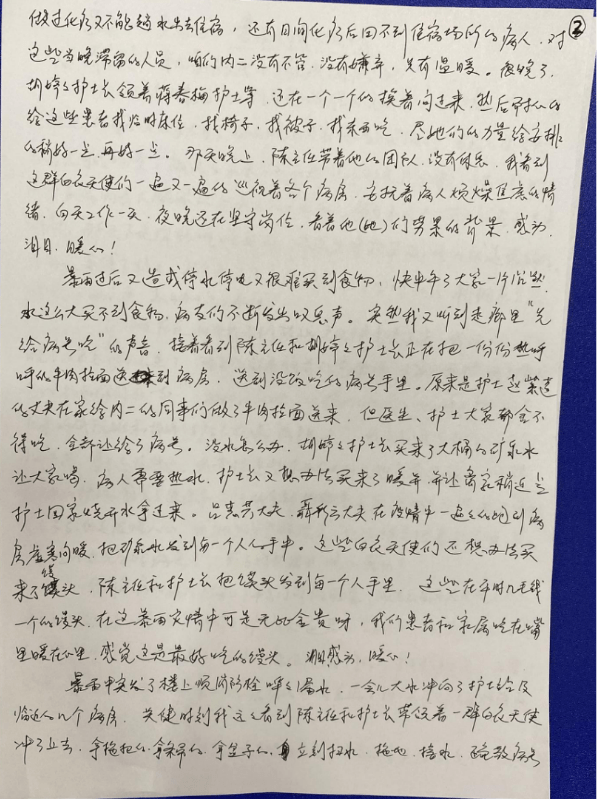 ②
做过化疗又不能趟水出去住宿，还有日间化疗后回不到住宿场所的病人，对
这些当晚滞留的人员，咱们内二没有不管，没有嫌弃，只有温暖。很晚了，
胡婷婷护士长领着蒋春梅护士等，还在一个一个的摸着问过来，然后
给这些患者找临时床位，找椅子，找被子，找东西吃，尽她们的力量给安排
的稍好一点，再好一点。那天晚上，陈主任带着他的团队，没有休息，我看到
这群白衣天使们一遍又一遍的巡视着各个病房，安抚着病人烦燥焦虑的情
绪，白天工作一天，夜晚还在坚守岗位，看着他(她)们劳累的背景，感动，
泪目，暖心！
暴雨过后又造成停水停电又很难买到食物，快中午了大家一片沉默，
水这么大买不到食物，病友们不断发出叹息声。突然我又听到走廊里“先
给病号吃”的声音，接着看到陈主任和胡婷婷护士长正在把一份份热呼
呼的牛肉拉面送到病房，送到没饭吃的病号手里。原来是护士赵
的丈夫在家给内二的同事们做了牛肉拉面送来，但医生、护士大家都舍不
得吃，全部让给了病号。没水怎么办，胡婷婷护士长买来了大桶的矿泉水
让大家喝，病人需要热水，护士长又想办法买来了暖瓶，并让离家稍近点
护士回家烧开水拿过来。吕大夫，大夫在疫情中一遍的到病
房嘘寒问暖，把矿泉水发到每一个人手中。这些白衣天使们还想办法买
来了馒头，陈主任和护士长把馒头发到每一个人手里，这些在平时几毛钱
一个的馒头，在这暴雨灾情中可是无比金贵呀，我们患者和家属吃在嘴
里暖在心里，感觉这是最好吃的馒头。泪目，感动，暖心！
暴雨中突发了楼上顶消防栓呼呼漏水，一会儿大水冲向了护士台及
临近的几个病房，关键时刻我又看到陈主任和护士长带领着一群白衣天使
冲了上去，拿拖把的，拿的，拿盆子的，立刻扫水，拖地，接水，疏散病号